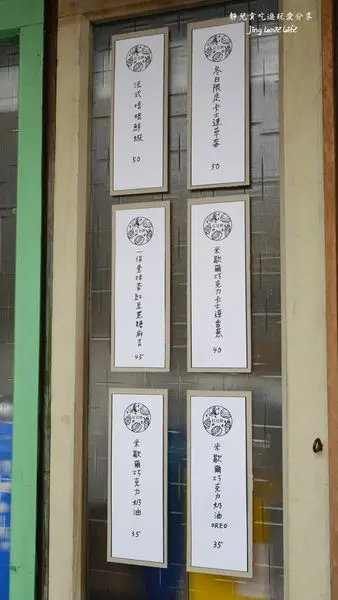 靜兒貪吃遊玩愛分享
Jing Love Life
法式培根鮮蝦
50
冬日限定卡士達草莓
50
一保堂抹茶紅豆黑糖麻吉
45
米歇爾巧克力卡士達香蕉
40
米歇爾巧克力奶油
35
米歇爾巧克力奶油
OREO
35